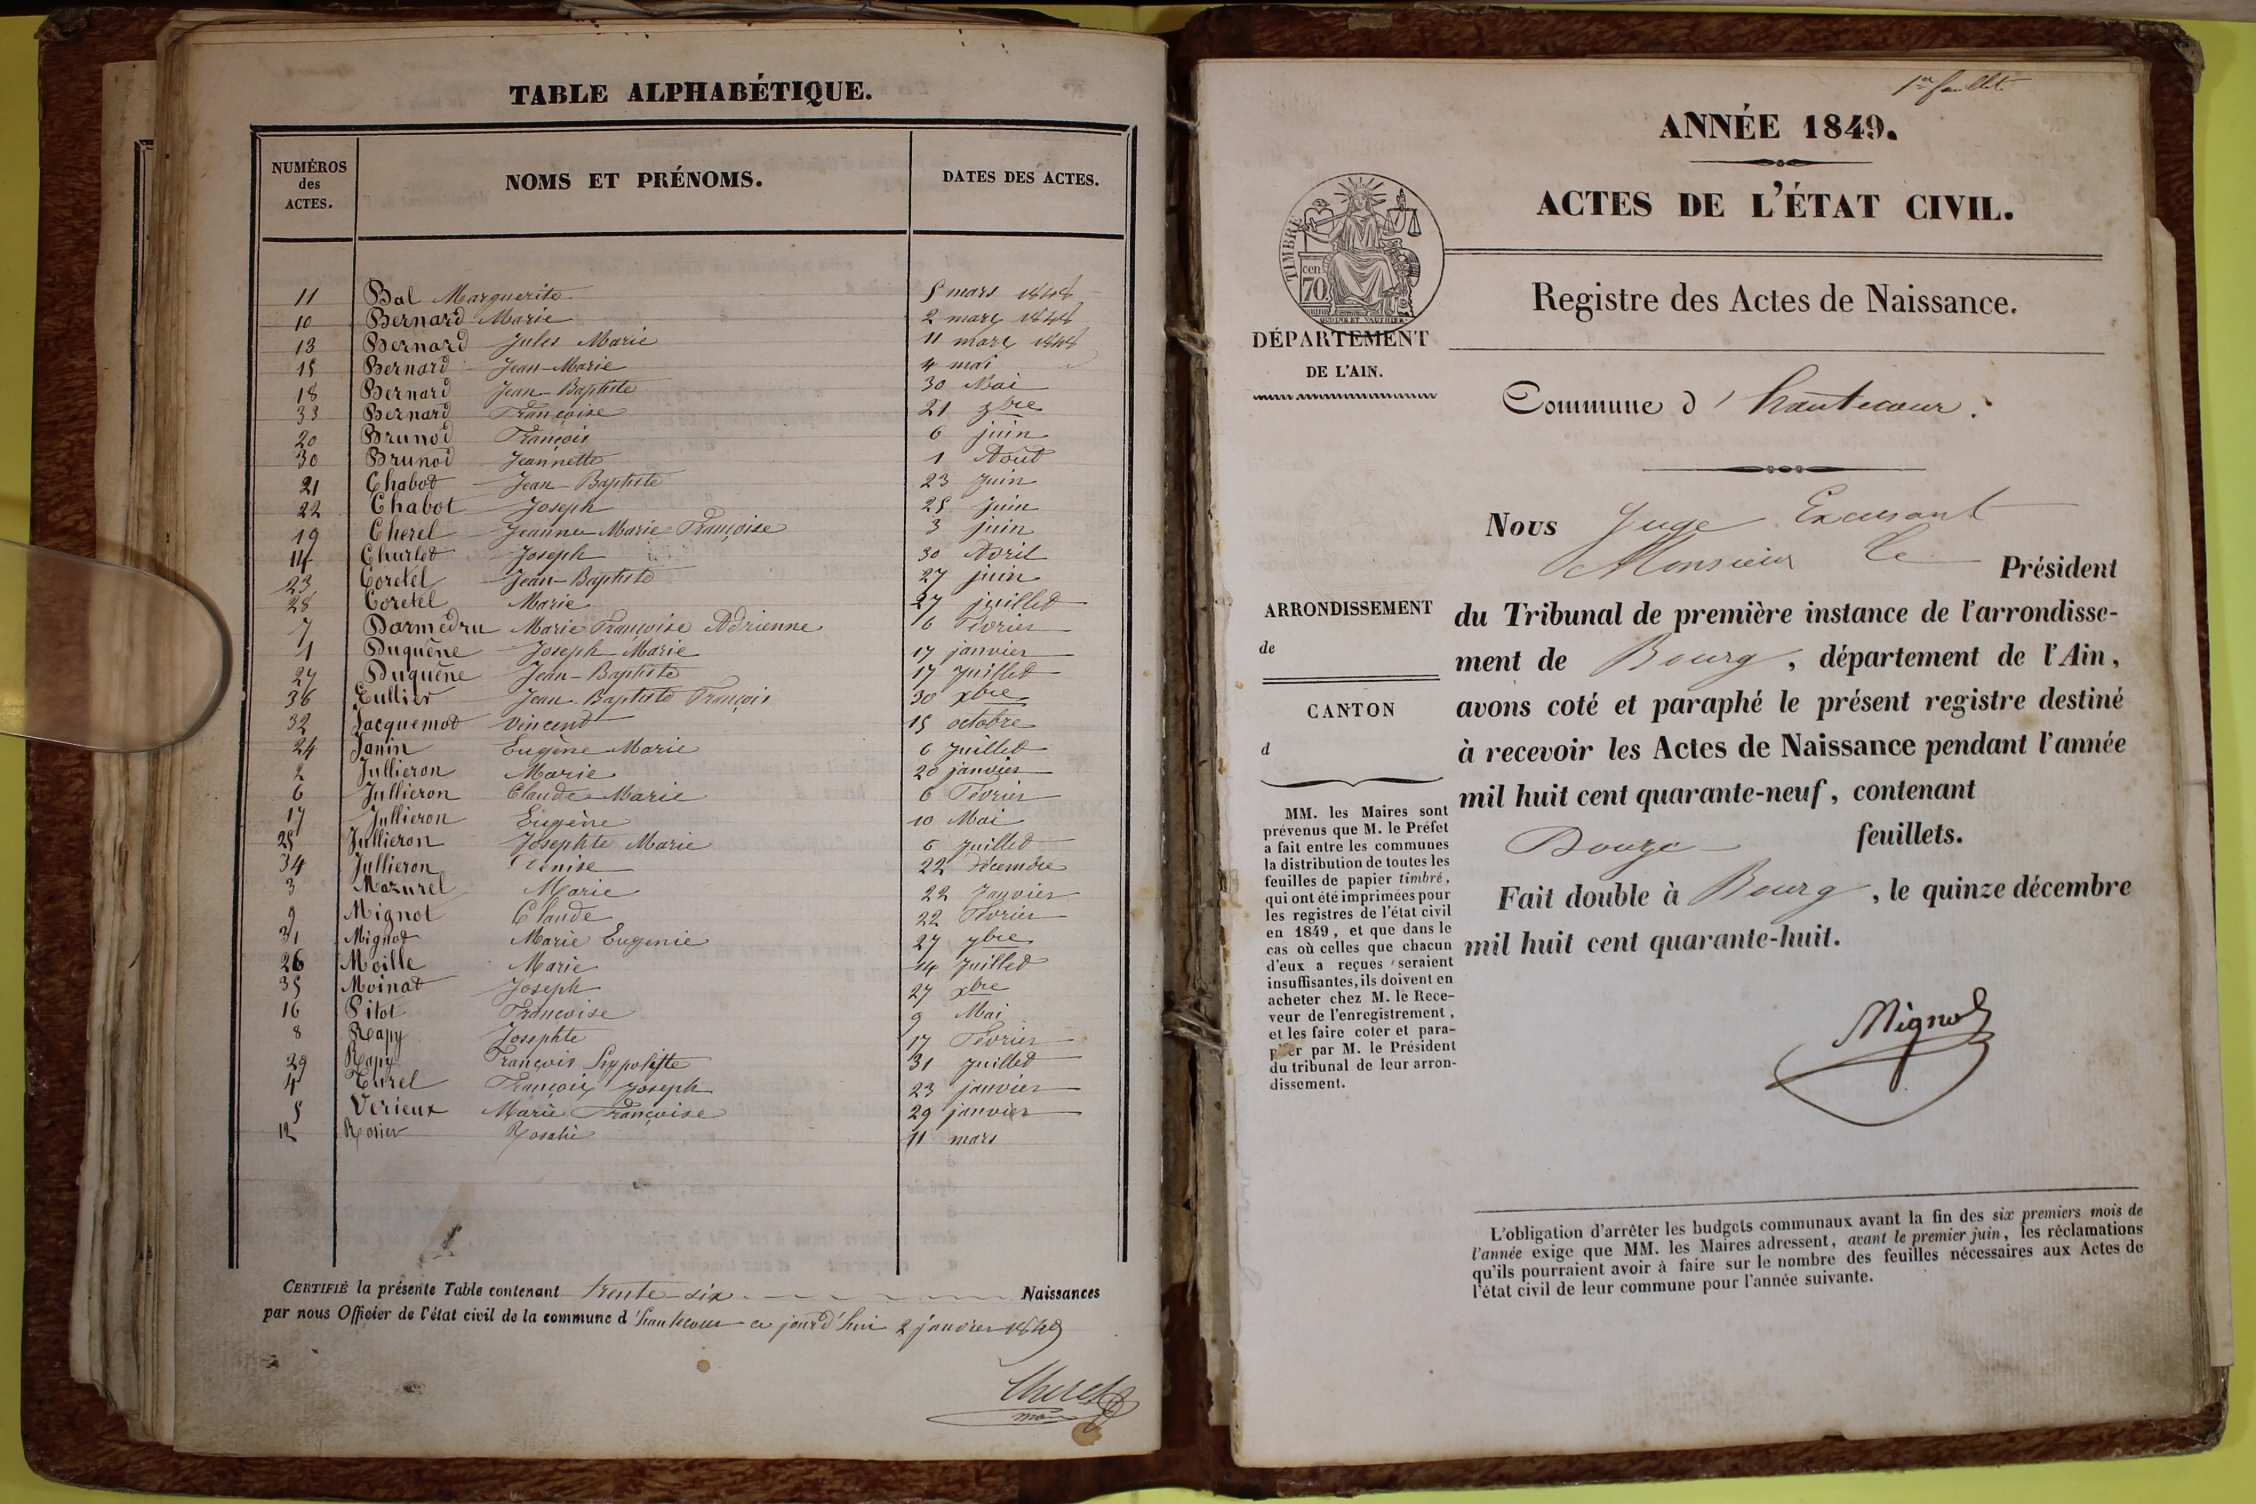 TABLE ALPHABÉTIQUE.
NUMÉROS des ACTES. NOMS ET PRÉNOMS. DATES DES ACTES.
11 Bal Marguerite 5 mars 1848
10 Bernard Marie 2 mars 1848
13 Bernard Jules Marie 11 mars 1848
15 Bernard Jean-Marie 4 mai
18 Bernard Jean-Baptiste 30 Mai
33 Bernard Françoise 21
20 Brunod François 6 juin
30 Brunod Jeannette 1 Août
21 Chabot Jean-Baptiste 23 Juin
22 Chabot Joseph 25 Juin
19 Cherel Jeanne Marie Françoise 3 juin
14 Churlet Joseph 30 Avril
23 Coretel Jean-Baptiste 27 juin
28 Coretel Marie 27 juillet
7 Darmedru Marie Françoise Adrienne 6 Février
1 Duquêne Joseph Marie 17 janvier
27 Duquêne Jean-Baptiste 17 Juillet
36 Jean Baptiste François 30 xbre
32 Jacquemot Vincent 15 octobre
24 Janin Eugène Marie 6 Juillet
2 Jullieron Marie 20 janvier
6 Jullieron Claude Marie 6 Février
17 Jullieron Eugène 10 Mai
25 Jullieron Josephte Marie 6 Juillet
34 Jullieron Denise 22 décembre
3 Mazurel Marie 22 Janvier
9 Mignot Claude 22 Février
31 Mignot Marie Eugenie 27
26 Moille Marie 14 Juillet
35 Moinat Joseph 27 xbre
16 Pitot Françoise 9 Mai
8 Rapy Josephte 17 Février
29 Rapy François hypolitte 31 Juillet
4 Turel François Joseph 23 janvier
5 Verieux Marie Françoise 29 janvier
12 Rosier Rosalie 11 mars
CERTIFIÉ la présente Table contenant trente-six Naissances
par nous Officier de l'état civil de la commune d'hautecour ce jourd'hui 2 janvier 1849
Cherel
maire
1er feuillet
ANNÉE 1849.
ACTES DE L'ÉTAT CIVIL.
TIMBRE
70 cen
Registre des Actes de Naissance.
DÉPARTEMENT
DE L'AIN.
Commune d'hautecour.
Nous Juge Excusant
Monsieur le Président
ARRONDISSEMENT
de
CANTON
d
du Tribunal de première instance de l'arrondisse-
ment de Bourg, département de l'Ain,
avons coté et paraphé le présent registre destiné
à recevoir les Actes de Naissance pendant l'année
mil huit cent quarante-neuf, contenant
Douze feuillets.
Fait double à Bourg, le quinze décembre
mil huit cent quarante-huit.
MM. les Maires sont
prévenus que M. le Préfet
a fait entre les communes
la distribution de toutes les
feuilles de papier timbré,
qui ont été imprimées pour
les registres de l'état civil
en 1849, et que dans le
cas où celles que chacun
d'eux a reçues seraient
insuffisantes, ils doivent en
acheter chez M. le Rece-
veur de l'enregistrement,
et les faire coter et para-
pher par M. le Président
du tribunal de leur arron-
dissement.
Mignot
L'obligation d'arrêter les budgets communaux avant la fin des six premiers mois de
l'année exige que MM. les Maires adressent, avant le premier juin, les réclamations
qu'ils pourraient avoir à faire sur le nombre des feuilles nécessaires aux Actes de
l'état civil de leur commune pour l'année suivante.